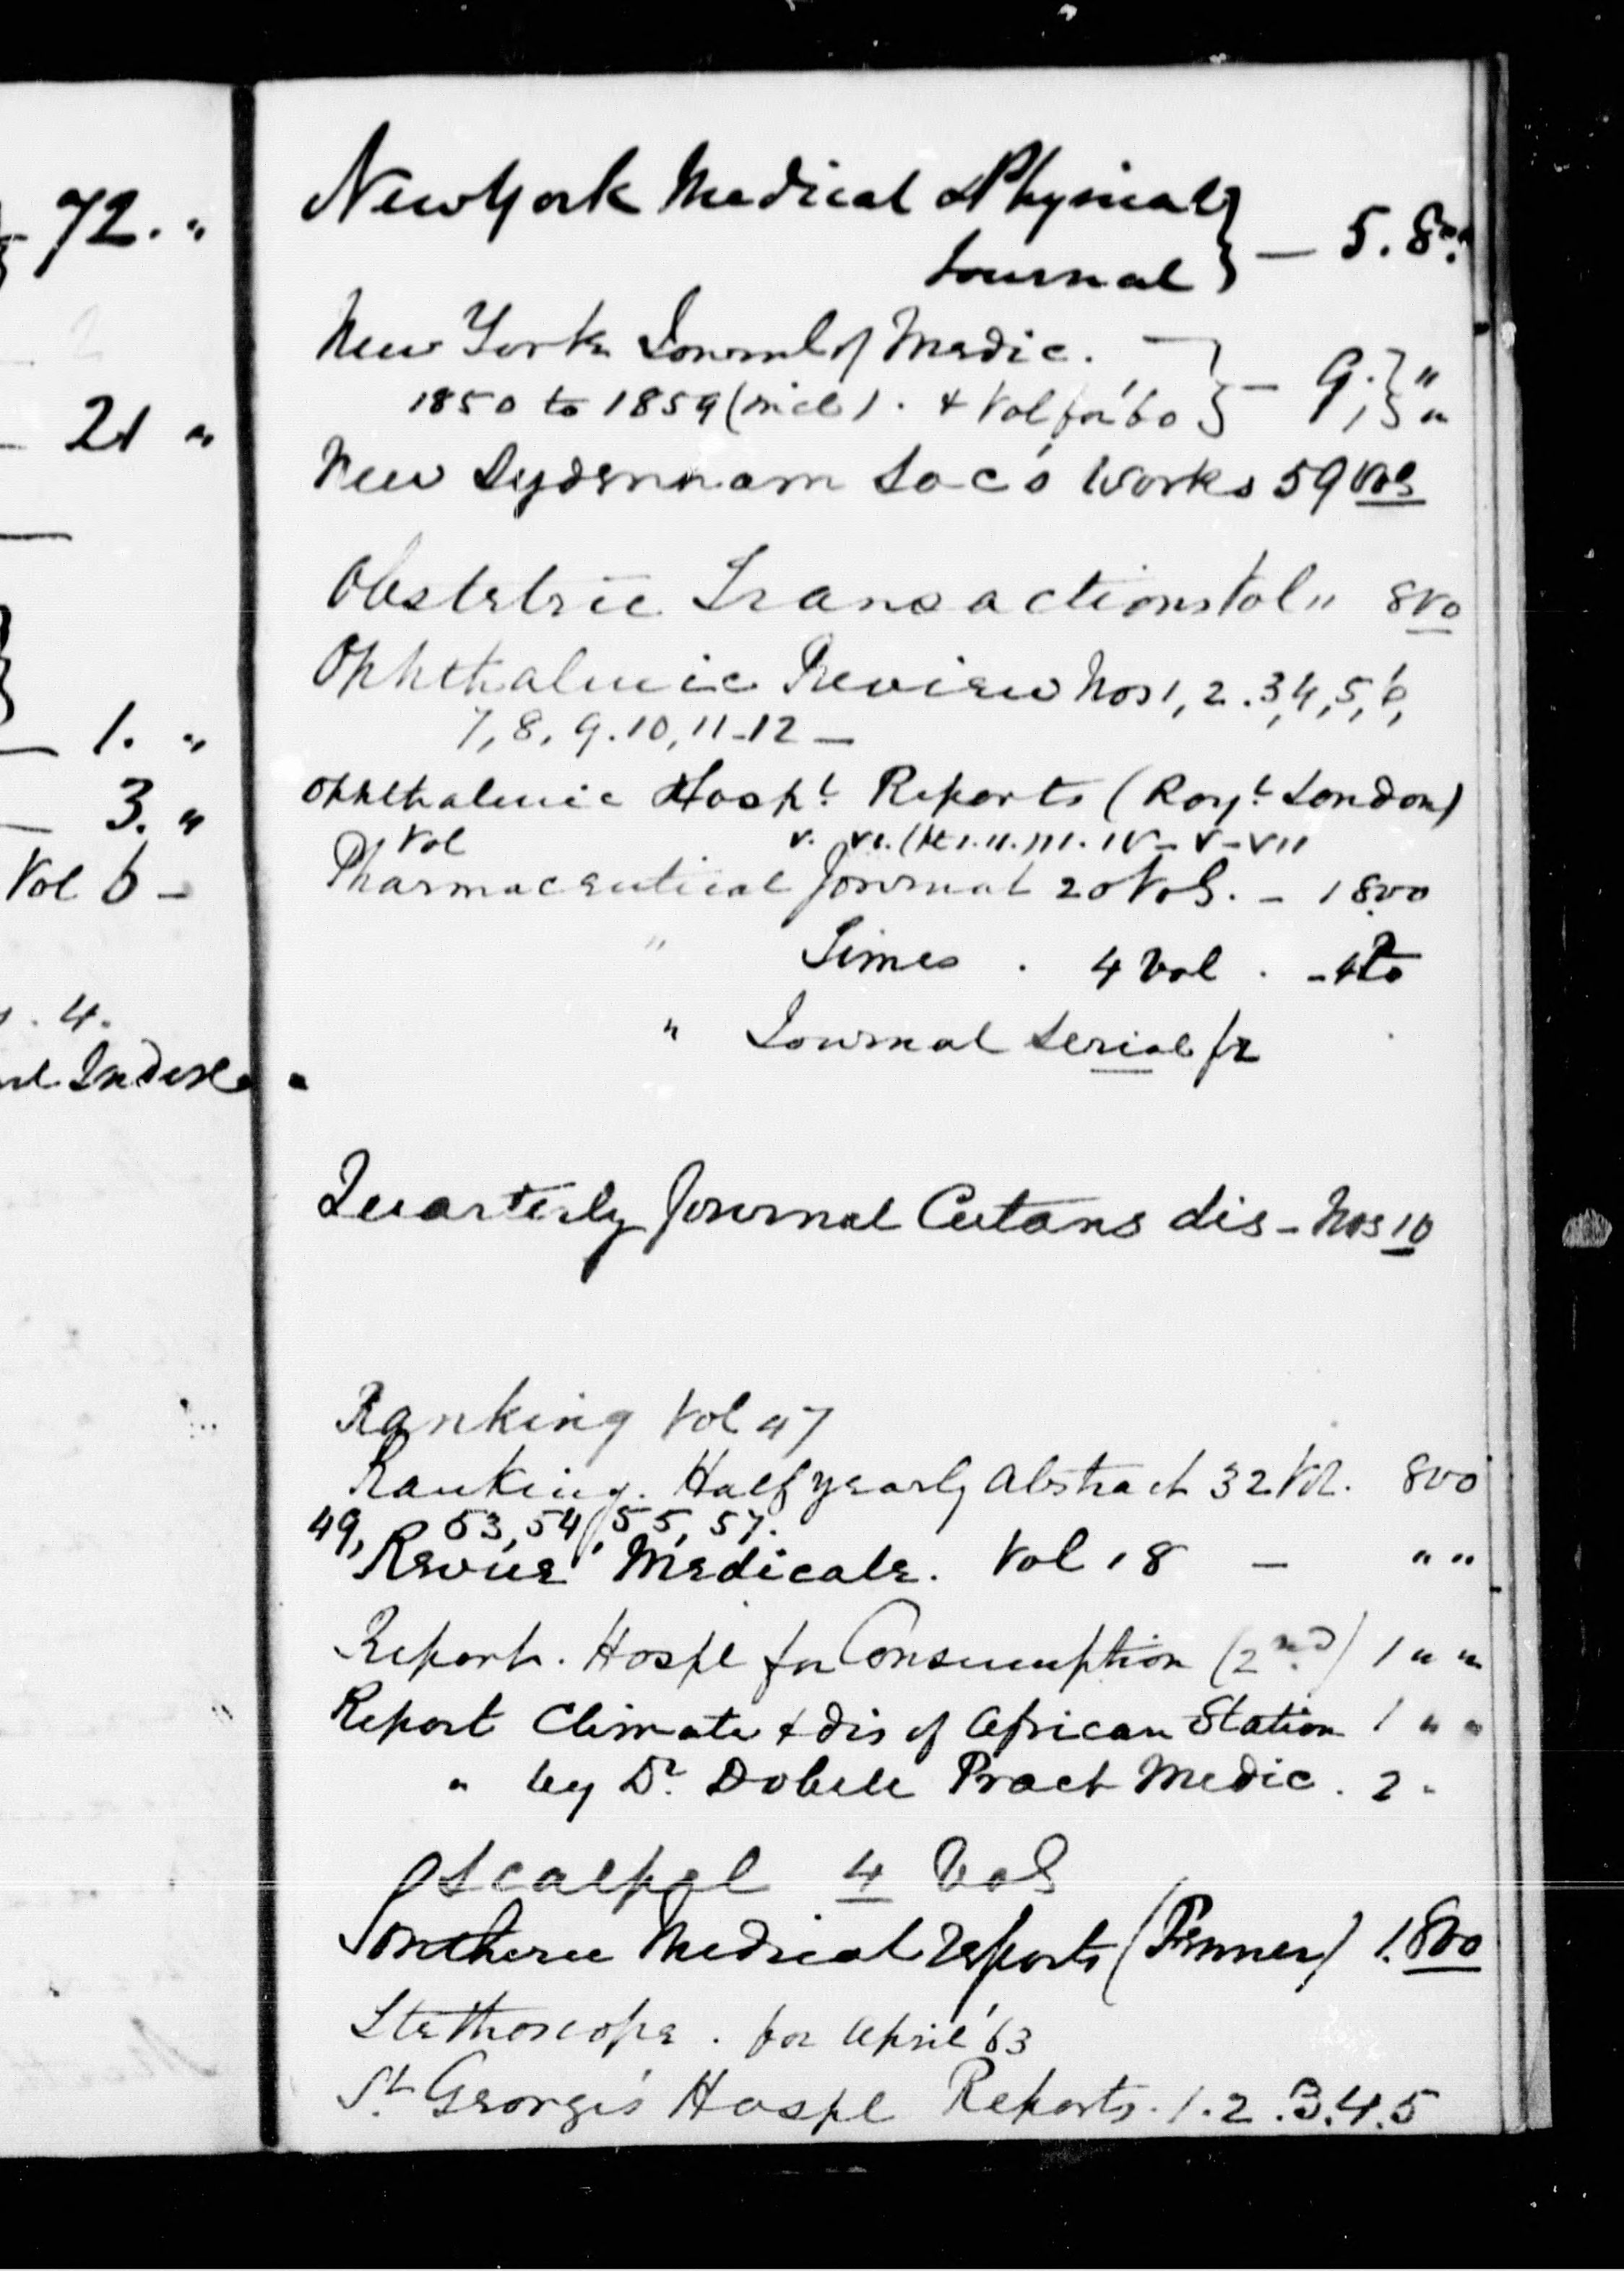 72. "
21 "
1. "
3. "
Vol 6 -
4.
Index
New York Medical & Physical
Journal } — 5. 8vo
New York Journl of Medic.
1850 to 1859 (incl). & Vol for '60 } — 9. } "
1, } "
New Sydennam Soc's Works 59 Vols
Obstetric Transactions Vol " 8vo
Ophthalmic Review Nos 1, 2. 3, 4, 5, 6,
7, 8, 9. 10, 11-12 —
Ophthalmic Hospl Reports (Royl London)
Vol V. VI. (Pt I. II. III. IV — V — VII
Pharmaceutical Journal 20 Vols. — 1 8vo
" Times . 4 Vol . - 4to
" Journal Serial fr
Quarterly Journal Cutans dis - Nos 10
Ranking Vol 47
Ranking. Half yearly Abstract 32 Vol. 8vo
49, 53, 54, 55, 57.
Revue Medicale. Vol 18 — " "
Report. Hospl for Consumption (2nd) 1 " "
Report Climate & dis of African Station 1 " "
" by Dr. Dobell Pract Medic. 2 "
Scalpel 4 Vols
Southern Medical Reports (Fenner) 1. 8vo
Stethoscope . for April '63
St. George's Hospl Reports. 1. 2. 3. 4. 5